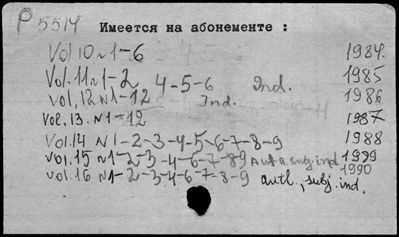 P 5514
Имеется на абонементе :
Vol. 10 N 1-6 1984.
Vol. 11 N 1-2 4-5-6 Ind. 1985
Vol. 12 N 1-12 Ind. 1986
Vol. 13. N 1-12 1987
Vol. 14 N 1-2-3-4-5-6-7-8-9 1988
Vol. 15 N 1-2-3-4-6-7-89 Aut a. subj. ind 1999
Vol. 16 N 1-2-3-4-6-7-8-9 auth., subj. ind. 1990